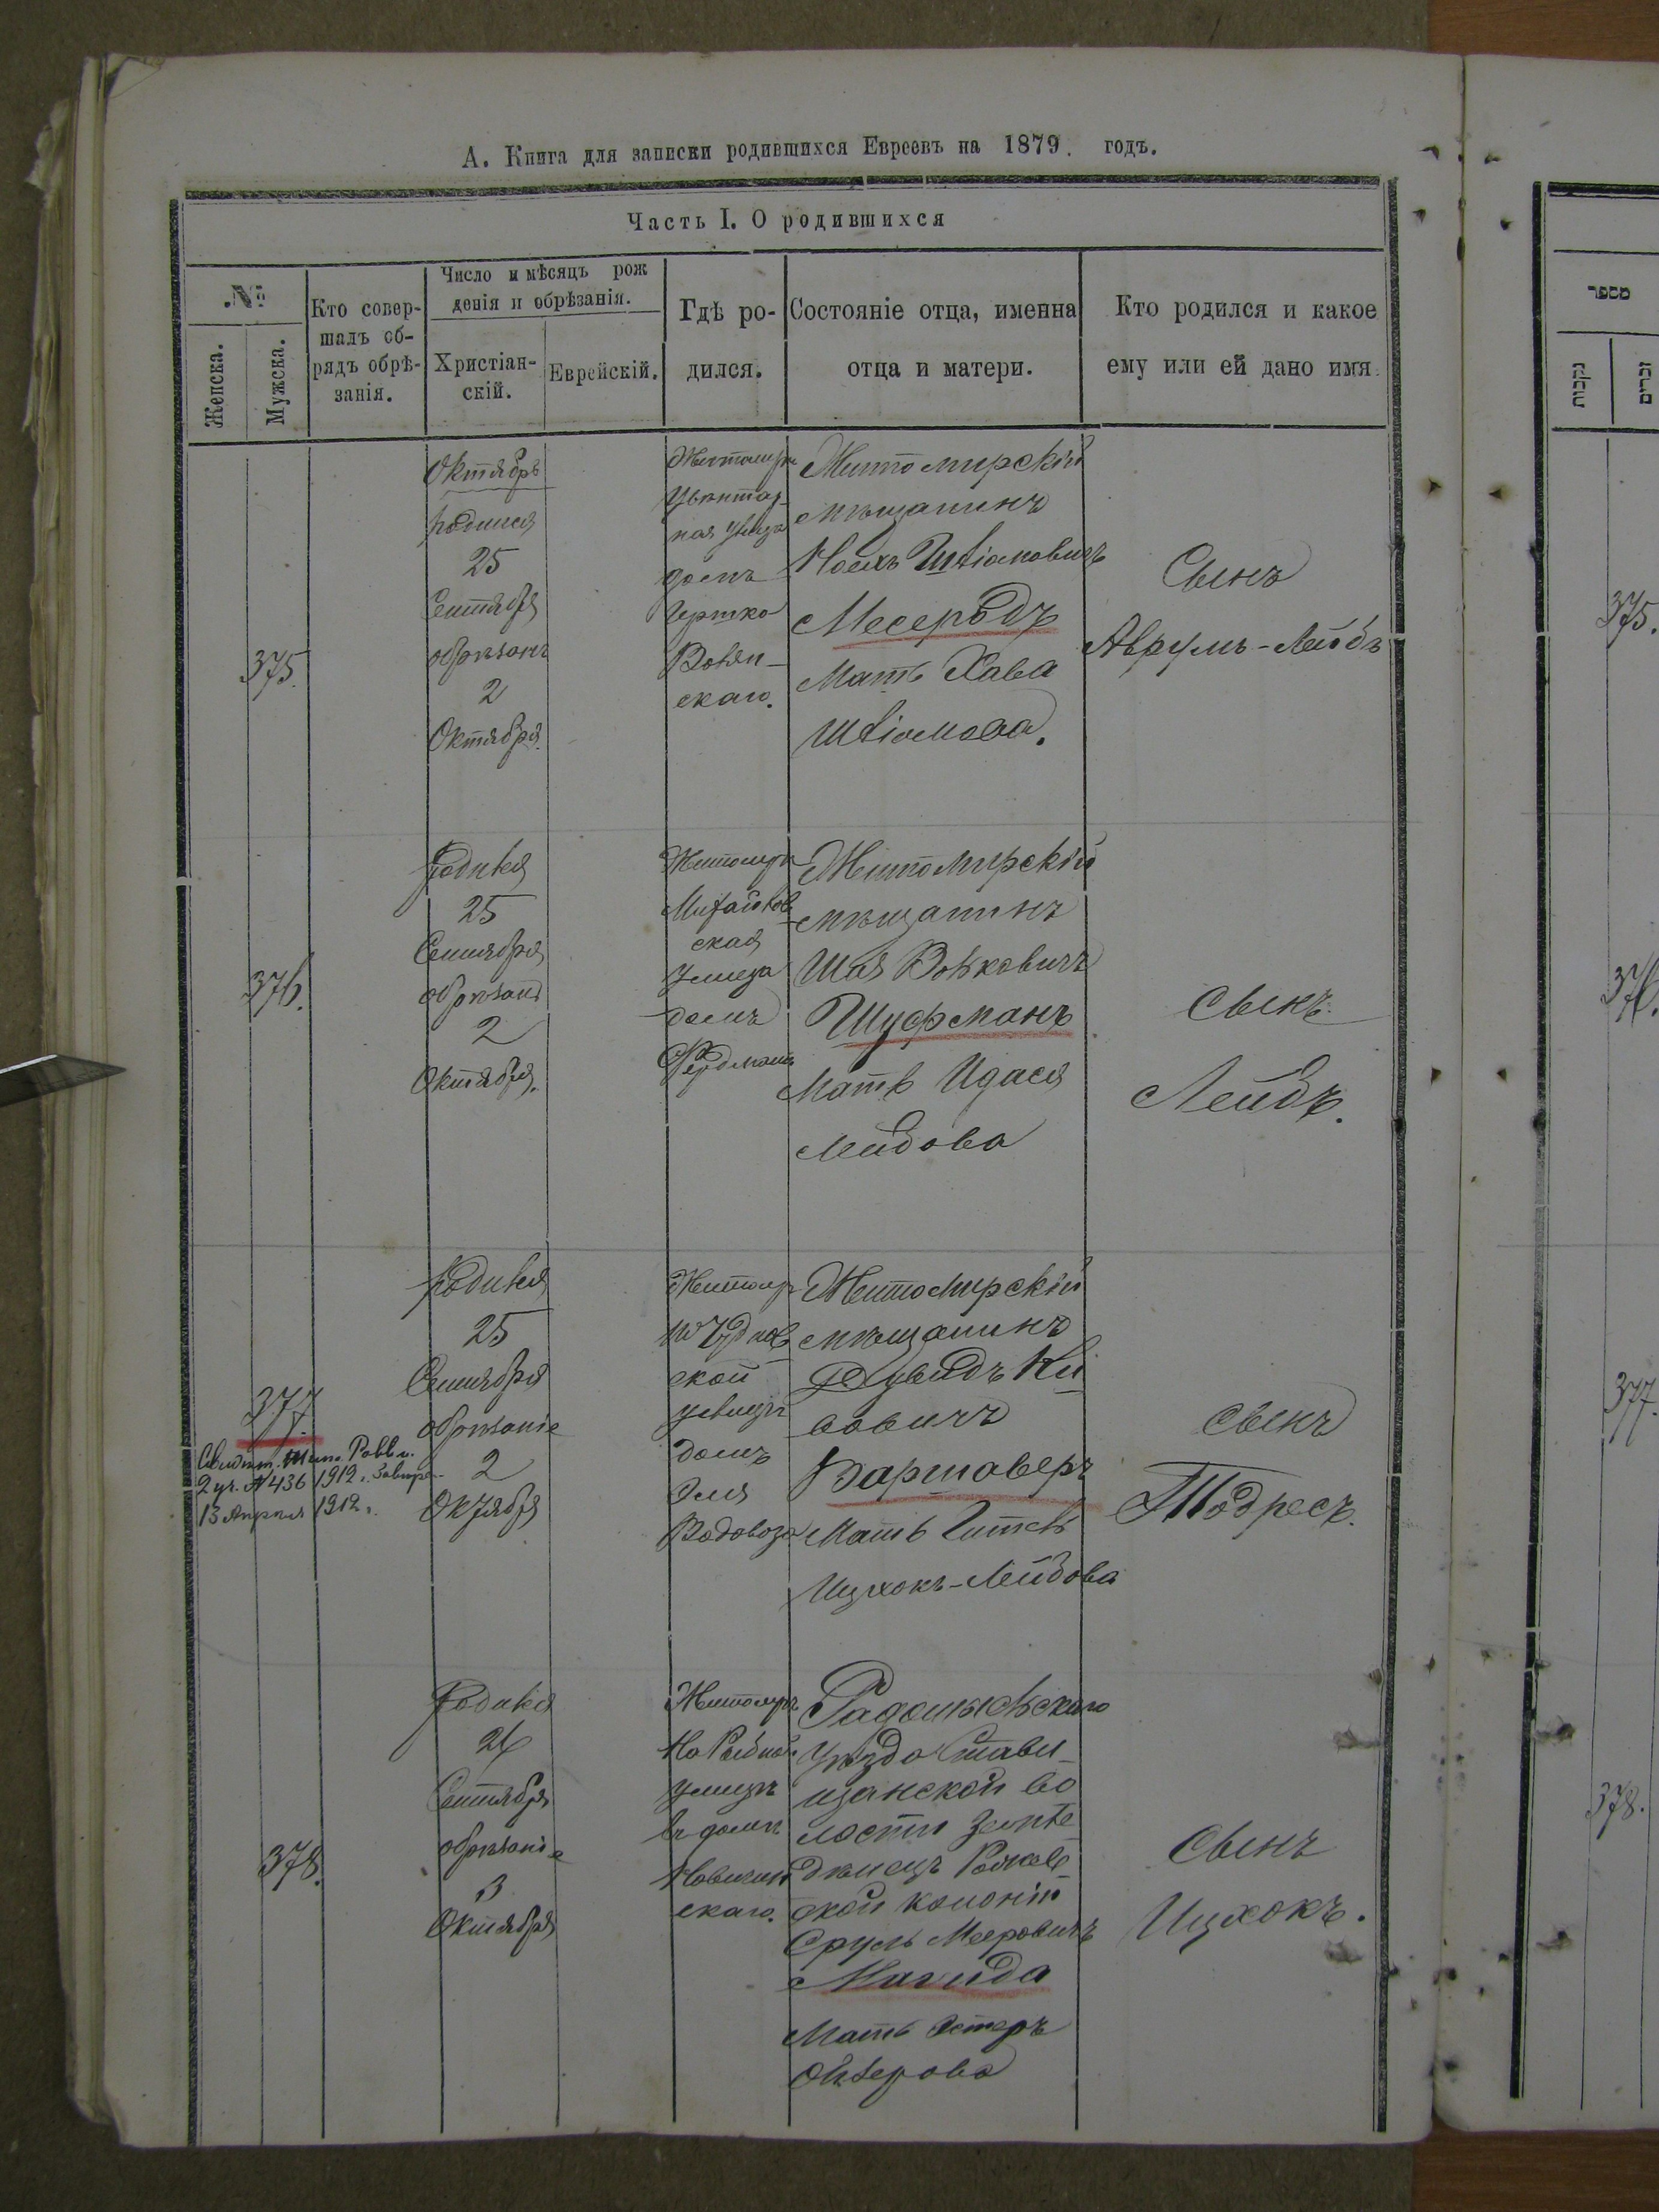 А. Книга для записки родившихся Евреевъ на 1879. годъ.
Часть I. О родившихся
№
Женска.
Мужска.
Кто совер-
шалъ об-
рядъ обрѣ-
занія.
Число и мѣсяцъ рож
денія и обрѣзанія.
Христіан-
скій.
Еврейскій.
Гдѣ ро-
дился.
Состояніе отца, именна
отца и матери.
Кто родился и какое
ему или ей дано имя.
375.
Октябрь
родился
25
Сентября
обрѣзанъ
2
Октября.
Житомиръ
ная улица
домъ
Чертко
скаго.
Житомирскій
мѣщанинъ
Шліомовичъ
Месеродъ
Мать Хава
Шліомова.
Сынъ
Аврумъ-Лейбъ
376.
родился
25
Сентября
обрѣзанъ
2
Октября.
Житомиръ
Михайлов
ская
улица
домъ
Житомирскій
мѣщанинъ
Шая Волковичъ
Шуфманъ
Мать Идася
Лейбова
Сынъ
Лейбъ.
377.
Свидѣт. Жит. Равви.
2 уч. № 436 1912 г.
13 Апрѣля 1912 г.
родился
25
Сентября
обрѣзаніе
2
Октября
Житомиръ
по Чуднов
ской
улицѣ
домъ
Эля
Водовоза
Житомирскій
мѣщанинъ
Дувидъ Ки
вовичъ
Варшаверъ
Мать Гитель
Ицхокъ-Лейбова
Сынъ
Тодресъ.
378.
родился
26
Сентября
обрѣзаніе
3
Октября
Житомиръ
На Рыбной
улицѣ
въ домѣ
скаго.
Радомысльскаго
уѣзда Стави
щанской во
лости земле
дѣлецъ
ской колоніи
Сруль Мееровичъ
Магида
Мать Эстеръ
Ойзерова
Сынъ
Ицхокъ.
מספר
נקבות
זכרים
375.
376.
377.
378.